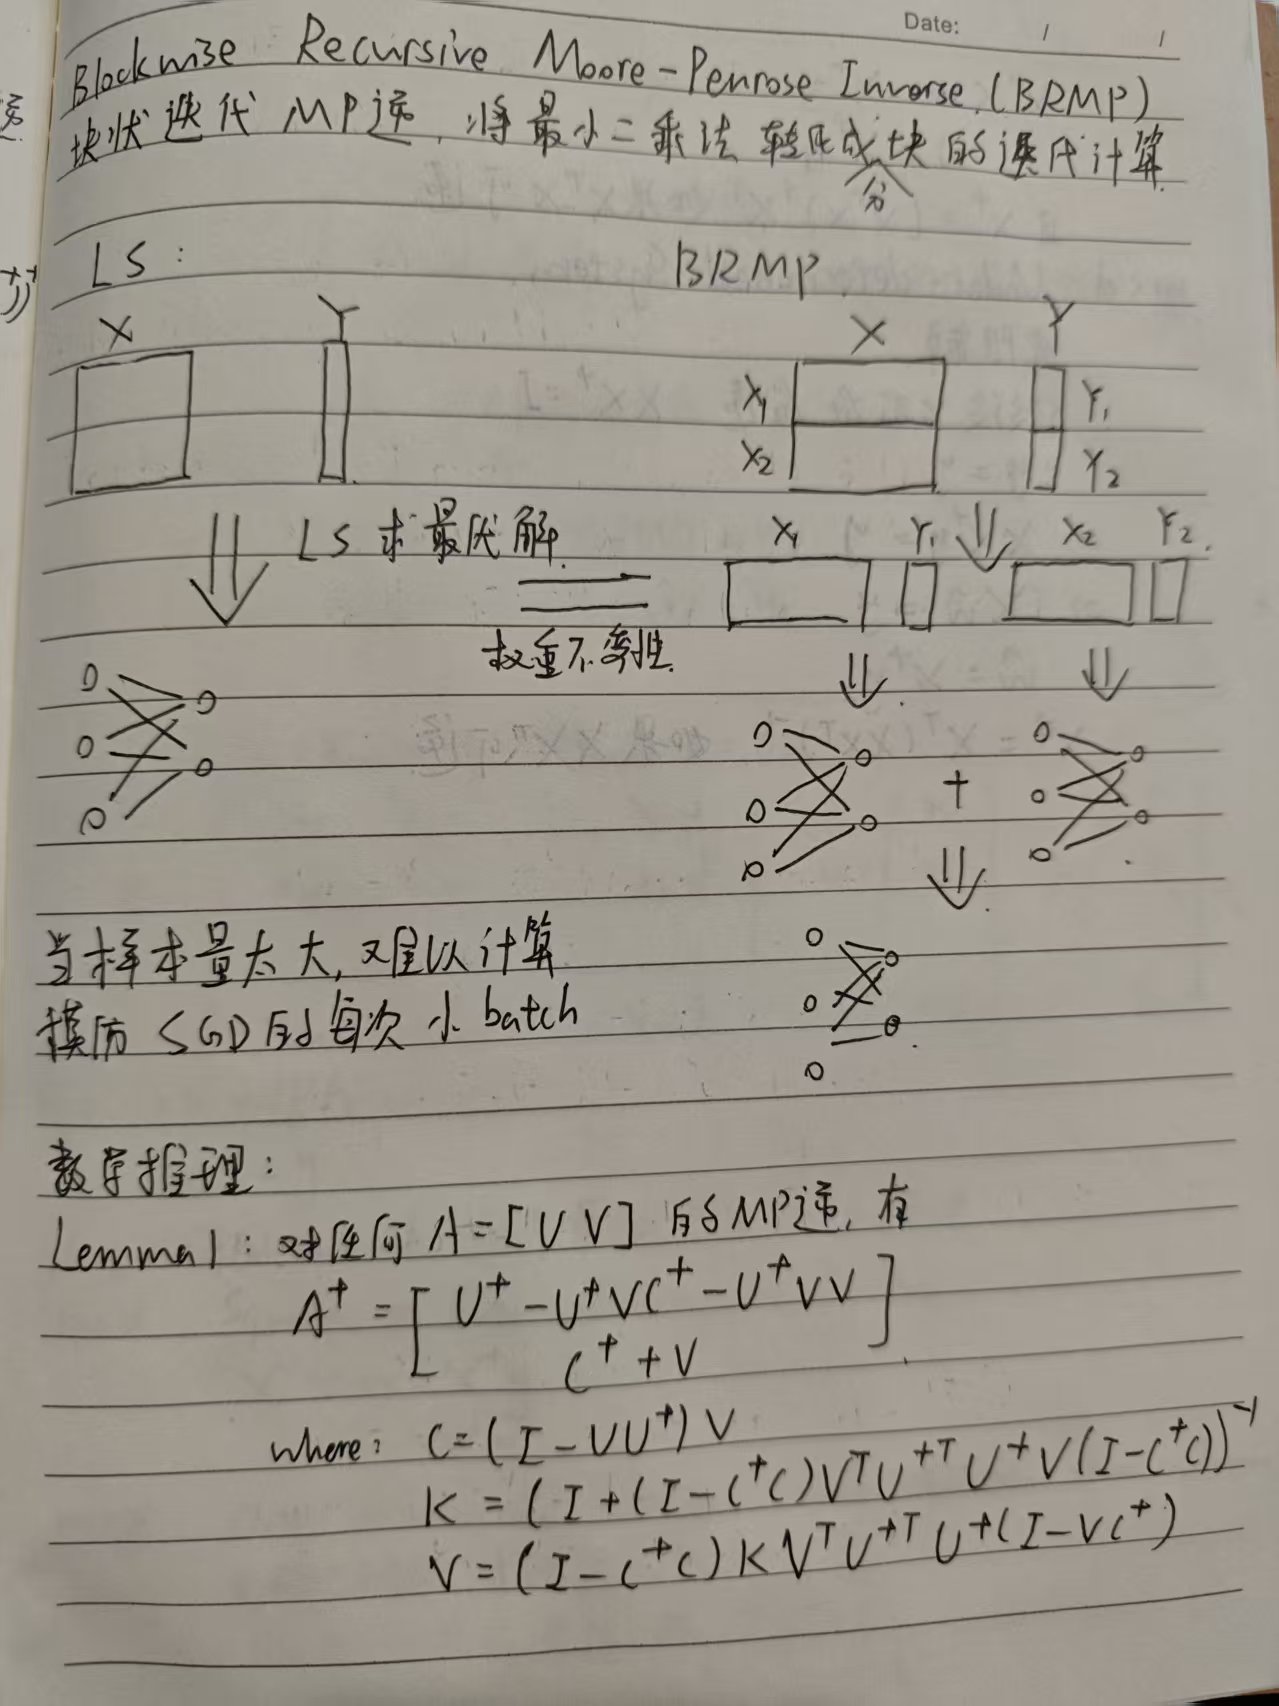 Date: / /
Blockwise Recursive Moore-Penrose Inverse.(BRMP)
块状迭代 MP逆,将最小二乘法 转化成分块的迭代计算.
LS: BRMP
X Y X Y
X₁ Y₁
X₂ Y₂
LS 求最优解. X₁ Y₁ X₂ Y₂.
权重不变性.
+
当样本量太大,难以计算
模仿 SGD的每次 小 batch
数学推理:
Lemma1: 对任何 A=[U V] 的MP逆,有
A⁺ = [ U⁺ - U⁺VC⁺ - U⁺VV ]
C⁺ + V
where: C=(I-UU⁺)V
K = (I+(I-C⁺C)VᵀU⁺ᵀU⁺V(I-C⁺C))⁻¹
V = (I-C⁺C)KVᵀU⁺ᵀU⁺(I-VC⁺)